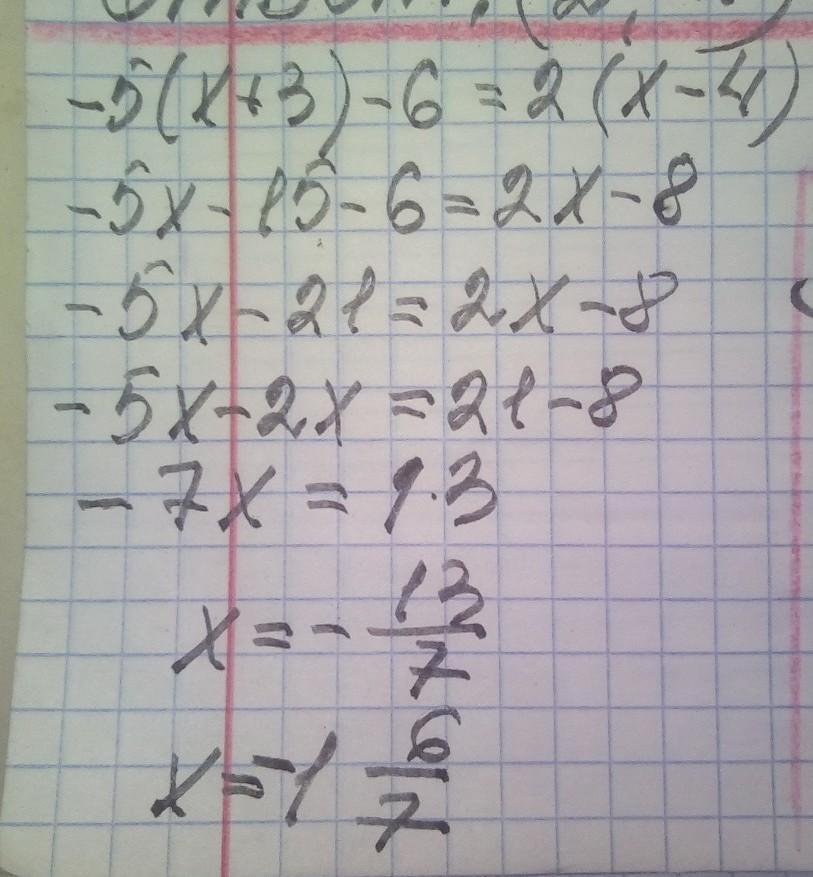 -5(x+3)-6=2(x-4)
-5x-15-6=2x-8
-5x-21=2x-8
-5x-2x=21-8
-7x=13
x=-13/7
x=-1 6/7